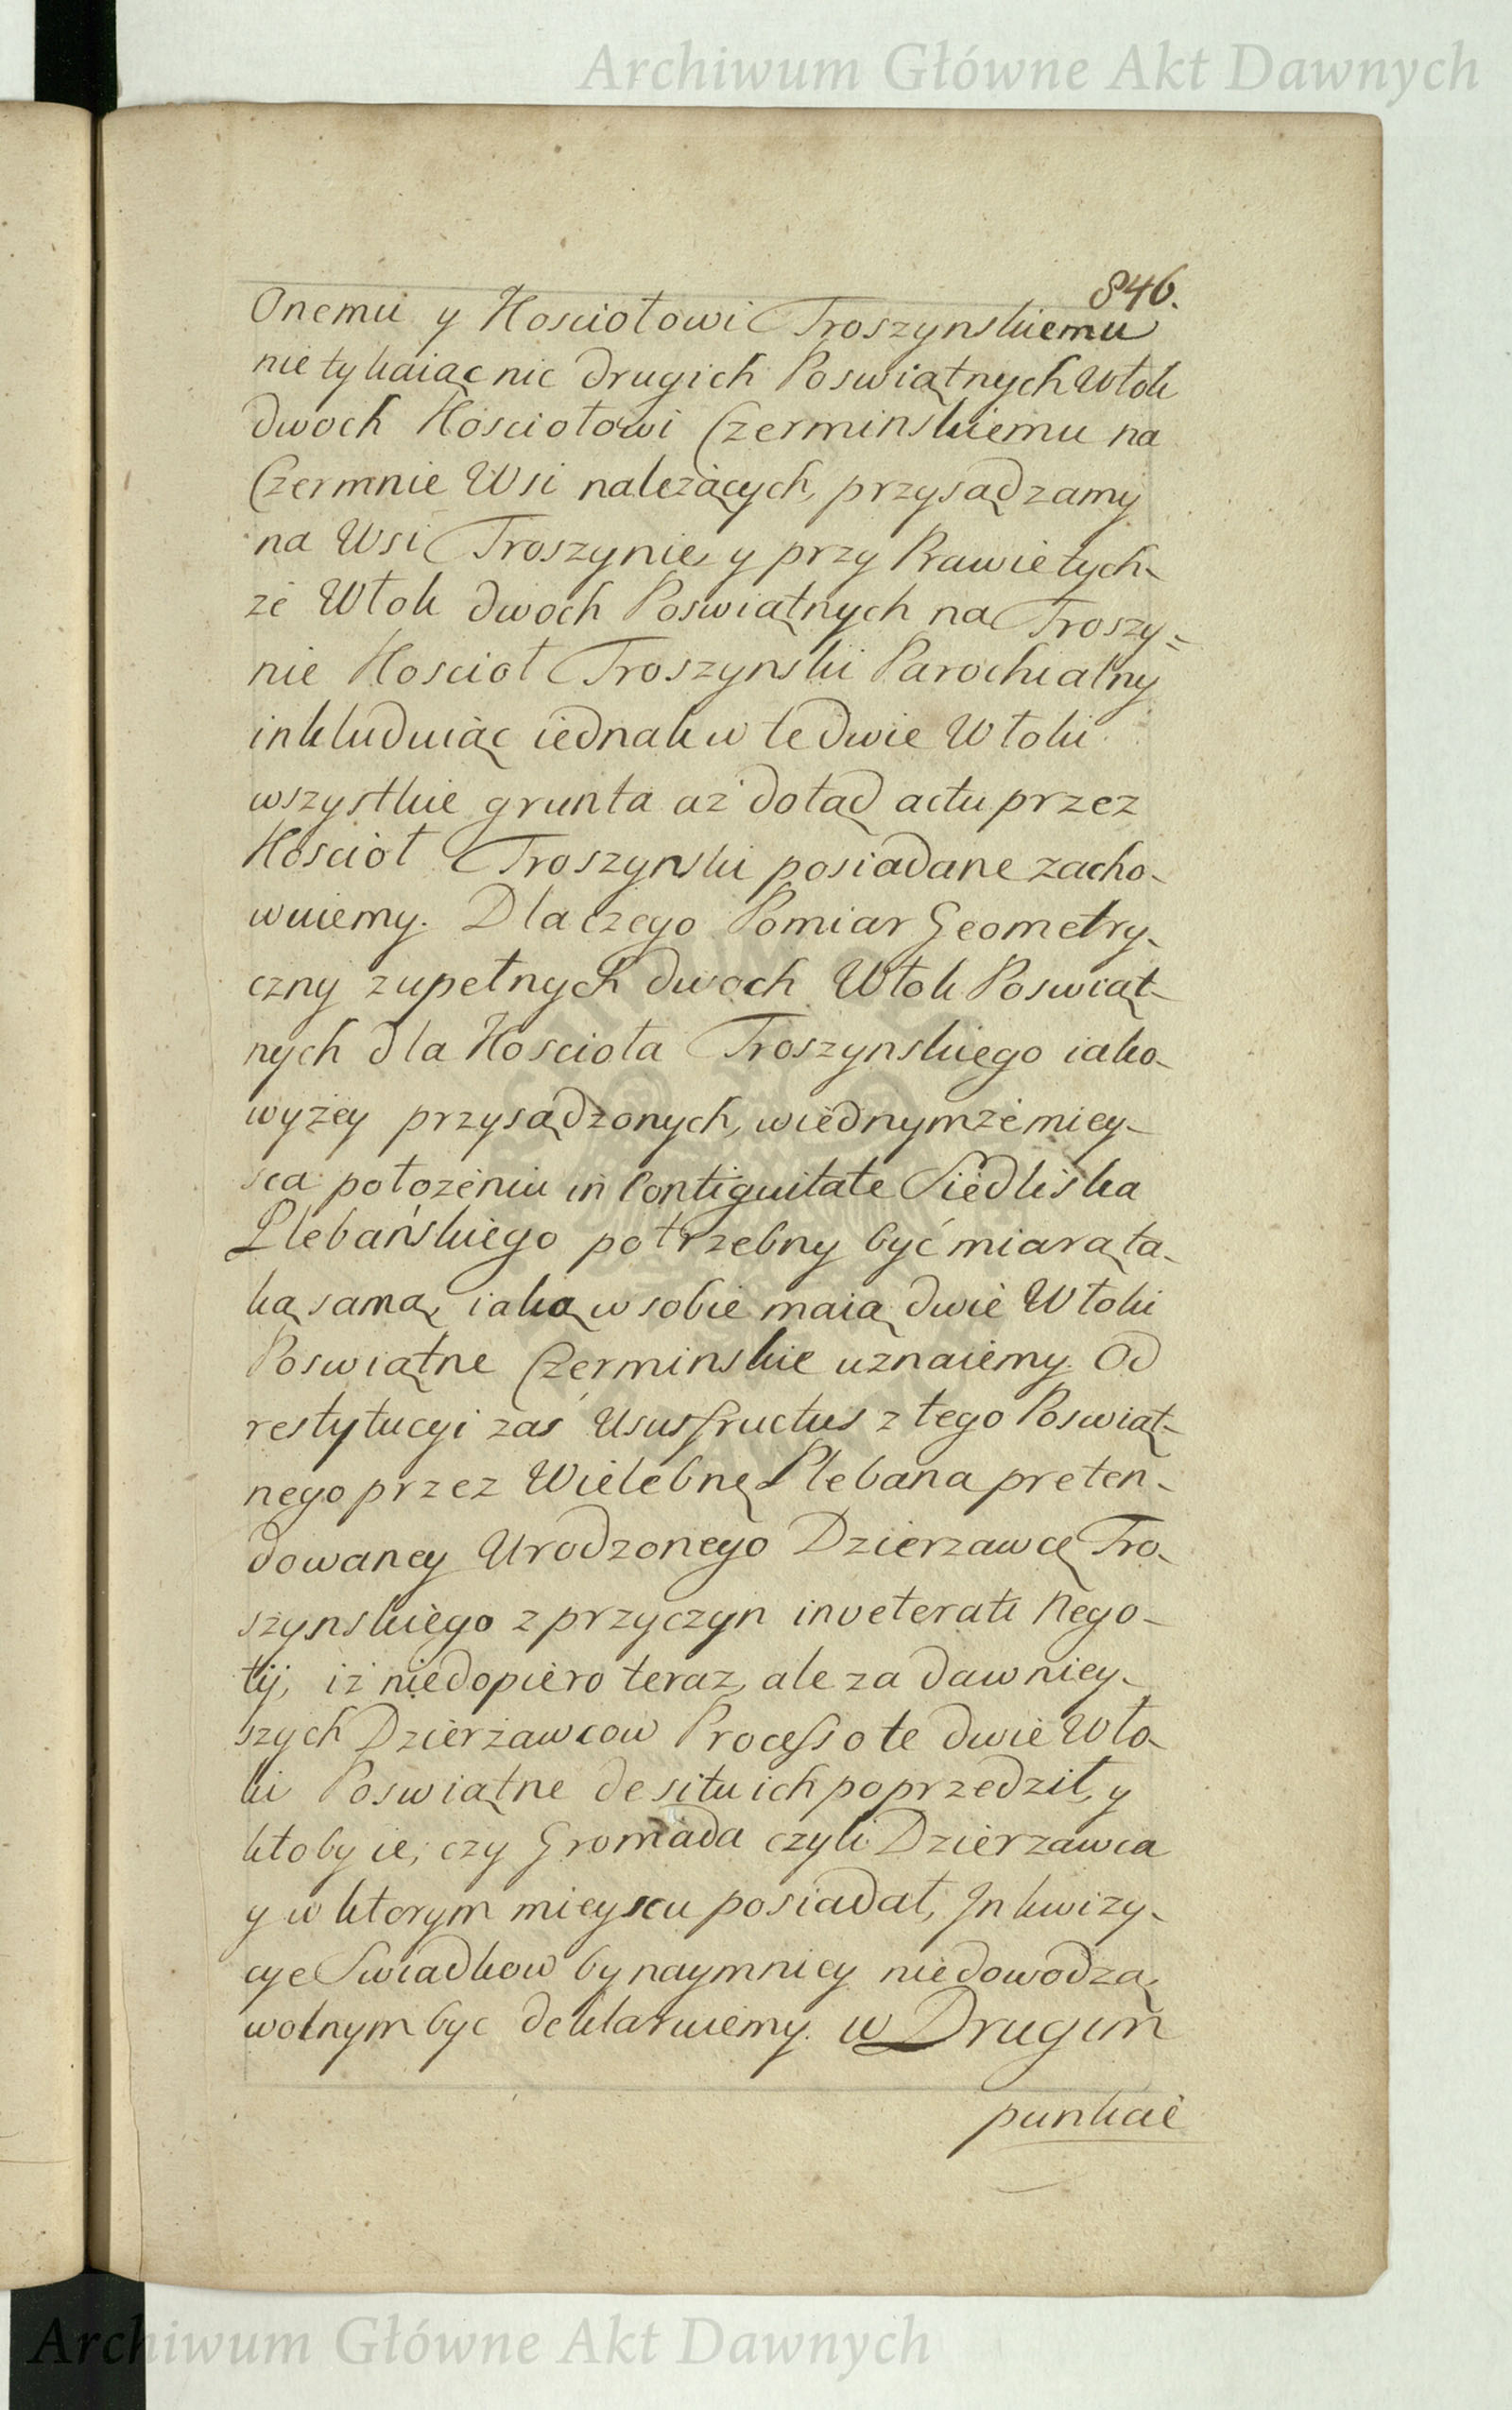 Archiwum Główne Akt Dawnych
846.
Onemu y Kosciołowi Troszynskiemu
nie tykaiąc nic drugich Poswiątnych Włok
dwoch Kosciołowi Czerminskiemu na
Czermnie Wsi należących, przysądzamy
na Wsi Troszynie, y przy Prawie tych-
że Włok dwoch Poswiątnych na Troszy=
nie Kosciol Troszynski Parochialny
inkluduiąc iednak w te dwie Włoki
wszystkie grunta aż dotąd actu przez
Kosciół Troszynski posiadane zacho-
wuiemy. Dla czego Pomiar Geometry-
czny zupełnych dwoch Włok Poswiąt-
nych dla Kosciola Troszynskiego iako-
wyżey przysądzonych, w iednymże miey-
sca położeniu in Contiguitate Siedliska
Plebańskiego potrzebny być miarą ta-
ką samą, iaką w sobie maią dwie Włoki
Poswiątne Czerminskie uznaiemy. Od
restytucyi zaś Ususfructus z tego Poswiąt-
nego przez Wielebnę Plebana preten-
dowaney Urodzonego Dzierzawcę Tro-
szynskiego z przyczyn inveterati Nego-
tij, iż niedopiero teraz, ale za dawniey-
szych Dzierżawcow Process o te dwie Wło-
ki Poswiątne de situ ich poprzedził, y
ktoby ie, czy Gromada czyli Dzierzawca
y w ktorym mieyscu posiadał, Inkwizy-
cye Swiadkow bynaymniey niedowodzą,
wolnym byc deklaruiemy. w Drugim
punkcie
Archiwum Główne Akt Dawnych